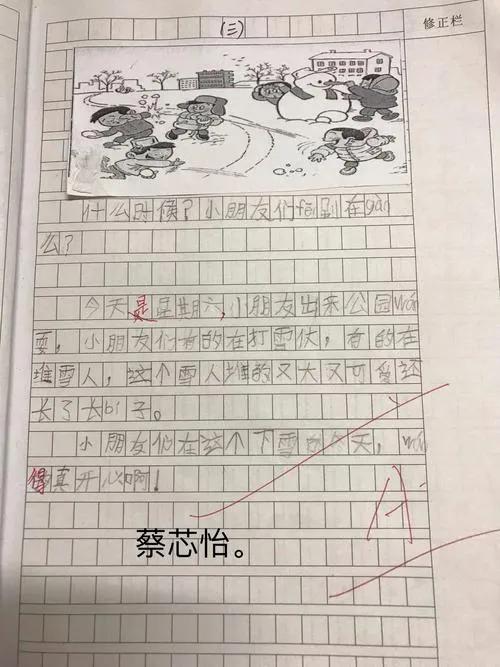 (三)
修正栏
什么时候?小朋友们fēn别在gàn
么?
今天是星期六,小朋友出来公园wán
耍,小朋友们有的在打雪仗,有的在
堆雪人,这个雪人堆的又大又可爱还
长了长bí子。
小朋友们在这个下雪的冬天,wán
得真开心啊!
蔡芯怡。